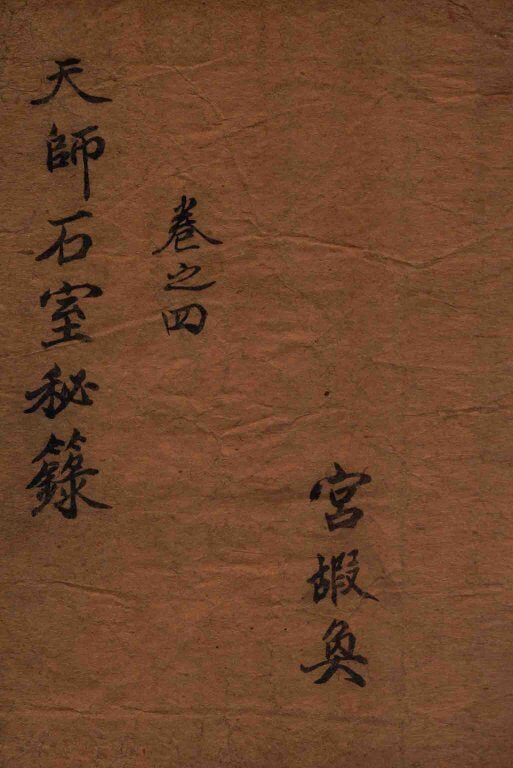 宮嘏奐
卷之四
天師石室秘籙